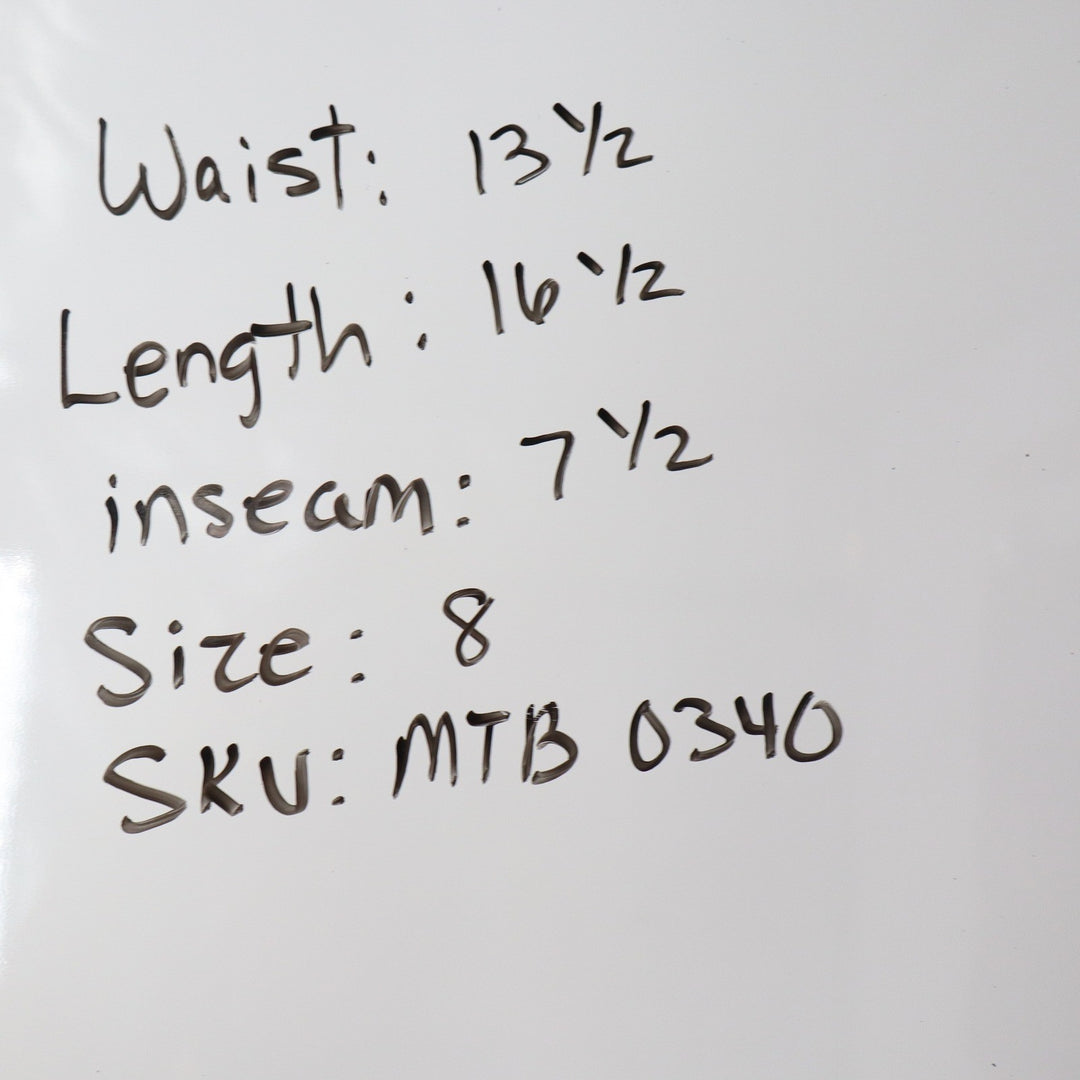 Waist: 13 1/2
Length: 16 1/2
inseam: 7 1/2
Size: 8
SKU: MTB 0340